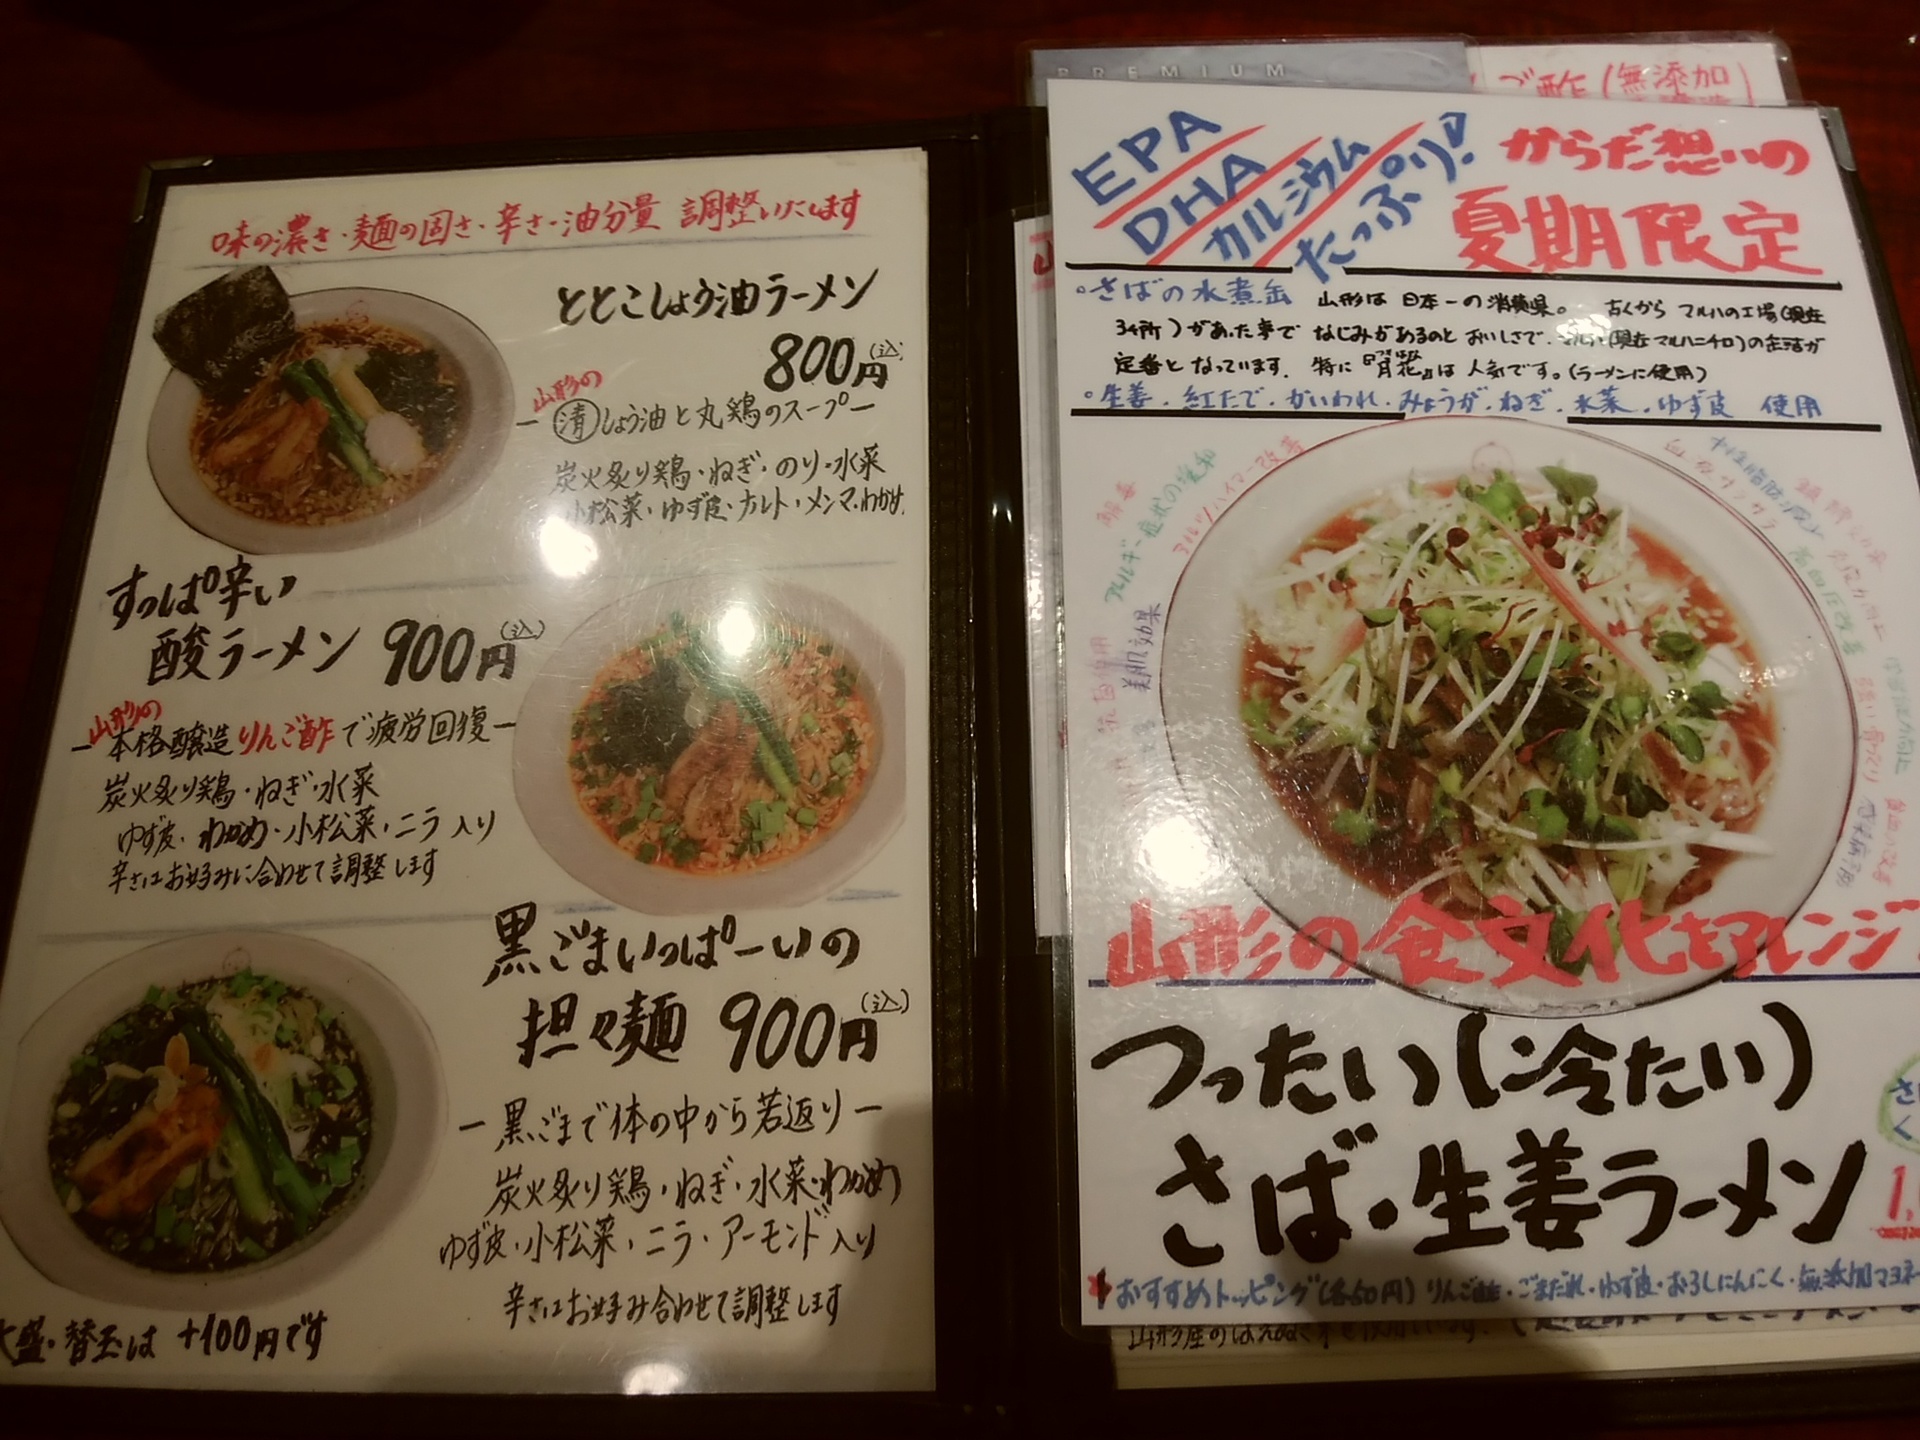 味の濃さ・麺の固さ・辛さ・油分量 調整いたします
ととこしょう油ラーメン
800円(込)
山形の
清 しょう油と丸鶏のスープ
炭火炙り鶏・ねぎ・のり・水菜
小松菜・ゆず皮・ナルト・メンマ・わかめ
すっぱ辛い
酸ラーメン 900円(込)
山形の
本格醸造りんご酢で疲労回復
炭火炙り鶏・ねぎ・水菜
ゆず皮・わかめ・小松菜・ニラ入り
辛さはお好みに合わせて調整します
黒ごまいっぱーいの
担々麺 900円(込)
黒ごまで体の中から若返り
炭火炙り鶏・ねぎ・水菜・わかめ
ゆず皮・小松菜・ニラ・アーモンド入り
辛さはお好み合わせて調整します
大盛・替玉は +100円です
PREMIUM
ご酢(無添加
EPA
DHA
カルシウム
たっぷり!
からだ想いの
夏期限定
・さばの水煮缶 山形は 日本一の消費県。 古くから マルハの工場(現在
3ヶ所)があった事で なじみがあるのと おいしさで、 (現在マルハニチロ)の缶詰が
定番と なっています。 特に『月花』は 人気です。(ラーメンに使用)
・生姜・紅たで・かいわれ・みょうが・ねぎ・水菜・ゆず皮 使用
アルツハイマー改善
アルギー症状の緩和
美肌効果
血液サラサラ
中性脂肪減少
高血圧改善
山形の食文化をアレンジ
つったい(冷たい)
さば・生姜ラーメン
さ
く
1,
おすすめトッピング(各50円) りんご酢・ごまだれ・ゆず皮・おろしにんにく・無添加マヨネ
山形産のはえぬき